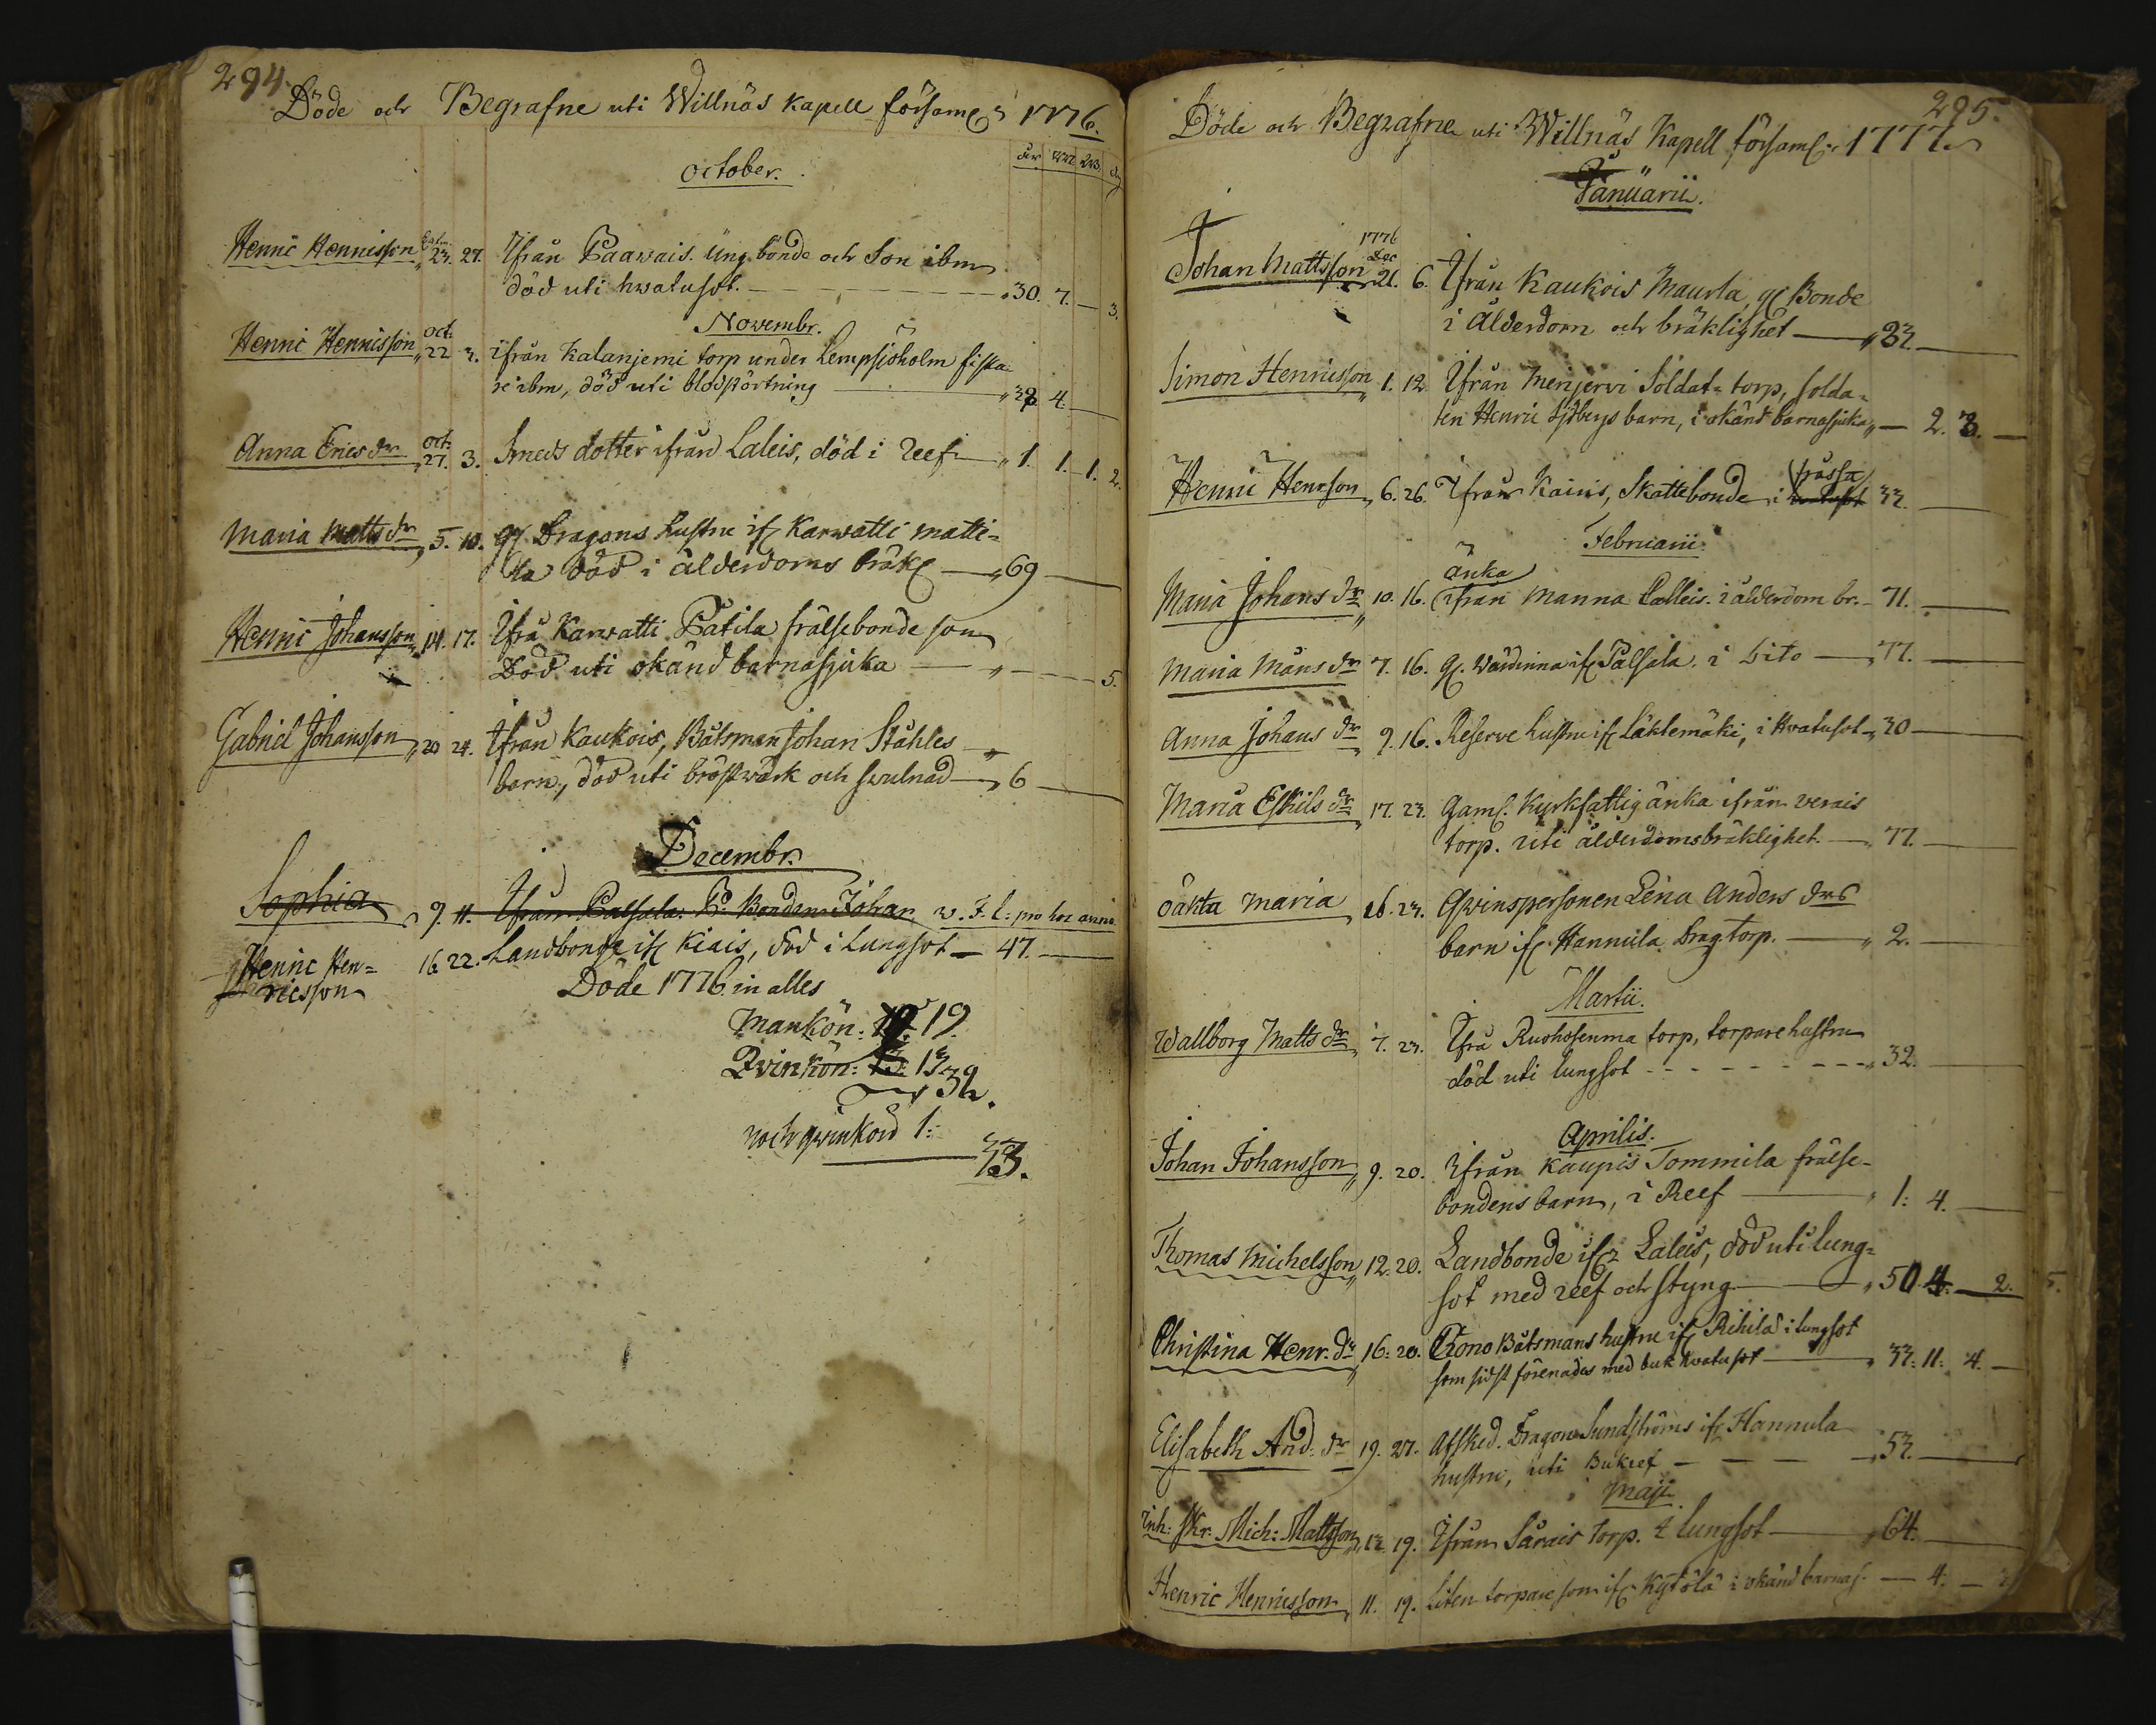 294.
Döde och Begrafne uti Willnäs Kapell församl: 1776.
October.
år M W D
Henric Henricsson 23. 27. Ifrån Paawais. Ung bonde och Son ibm
död uti hwatusot. 30. 7. 3.
Novembr.
Henric Henricsson oct: 22 3. ifrån Kalanjemi torp under Lempsjöholm fiska-
re ibm, död uti blodstörtning 4.
Anna Erics dr oct: 27. 3. Smeds dotter ifrån Laleis, död i reef 1. 1. 1. 2.
Maria Matts dr 5. 10. gl Dragons hustru ifr Karwatti Matti-
la död i ålderdoms bräkl 69
Henric Johansson 14. 17. Ifrå Karwatti Patila frälsebonde son
Död uti okänd barnasjuka 5.
Gabriel Johansson 20 24. Ifrån Kaukois, Båtsman Johan Ståhles
barn, död uti bröstwärk och swulnad 6
Decembr.
Sophia 9. 11. Ifrån Palsala. Bonden Johan v. f. l: pro hoc anno
Henric Hen= 16 22. Landbonde ifr Kiais, död i Lungsot 47.
ricsson
Döde 1776 in alles
Mankön: 19.
Qvinkön: 13
32.
noch qwinkön 1:
33.
295.
Döde och Begrafne uti Willnäs Kapell församl: 1777.
Januarii.
1776
Dec
Johan Mattsson 21. 6. Ifrån Kaukois Maurla, gl Bonde
i Ålderdom och bräklighet 83.
Simon Henricsson 1. 12. Ifrån Menjervi Soldat-torp, solda-
ten Henric Sjöbergs barn, i okänd barnasjuka 2. 3.
frossa
Henric Henrsson 6. 26. Ifrån Kainis, Skattebonde i hwatusot 33.
Februarii.
änka
Maria Johans dr 10. 16. ifrån Manna Lalleis. i ålderdom br. 71.
Maria Måns dr 7. 16. gl. Wärdinna ifr Palsala. i Sito 77.
Anna Johans dr 9. 16. Reserve hustru ifr Läktemäki, i hwatusot 30
Maria Eskils dr 17. 23. Gaml. Kyrkfattig änka ifrån verais
torp. uti ålderdomsbräklighet. 77.
oäkta Maria 16. 23. Qwinspersonen Lena Anders drs
barn ifr Hannula Drag torp. 2.
Martii.
Wallborg Matts dr 7. 23. Ifrå Ruohosenma torp, torpare hustru
död uti lungsot 32.
Aprilis.
Johan Johansson 9. 20. Ifrån Kaupis Tommila frälse-
bondens barn, i Reef 1: 4.
Thomas Michelsson 12. 20. Landbonde ifr Laleis, död uti lung-
sot med reef och styng 50 4. 2.
Christina Henr. dr 16: 20. Crono Båtsmans hustru ifr Rihila i lungsot
som sidst förenades med buk hwatusot 33: 11: 4.
Elisabeth And: dr 19. 27. Afsked. Dragon Sundströms ifr Hannula
hustru, uti Bukref 53.
Maji
Inh: Skr: Mich: Mattsson 13 19. Ifrån Särais torp. i lungsot 64.
Henric Henricsson 11. 19. Liten torpare son ifr Kytölä i okänd barnas. 4.